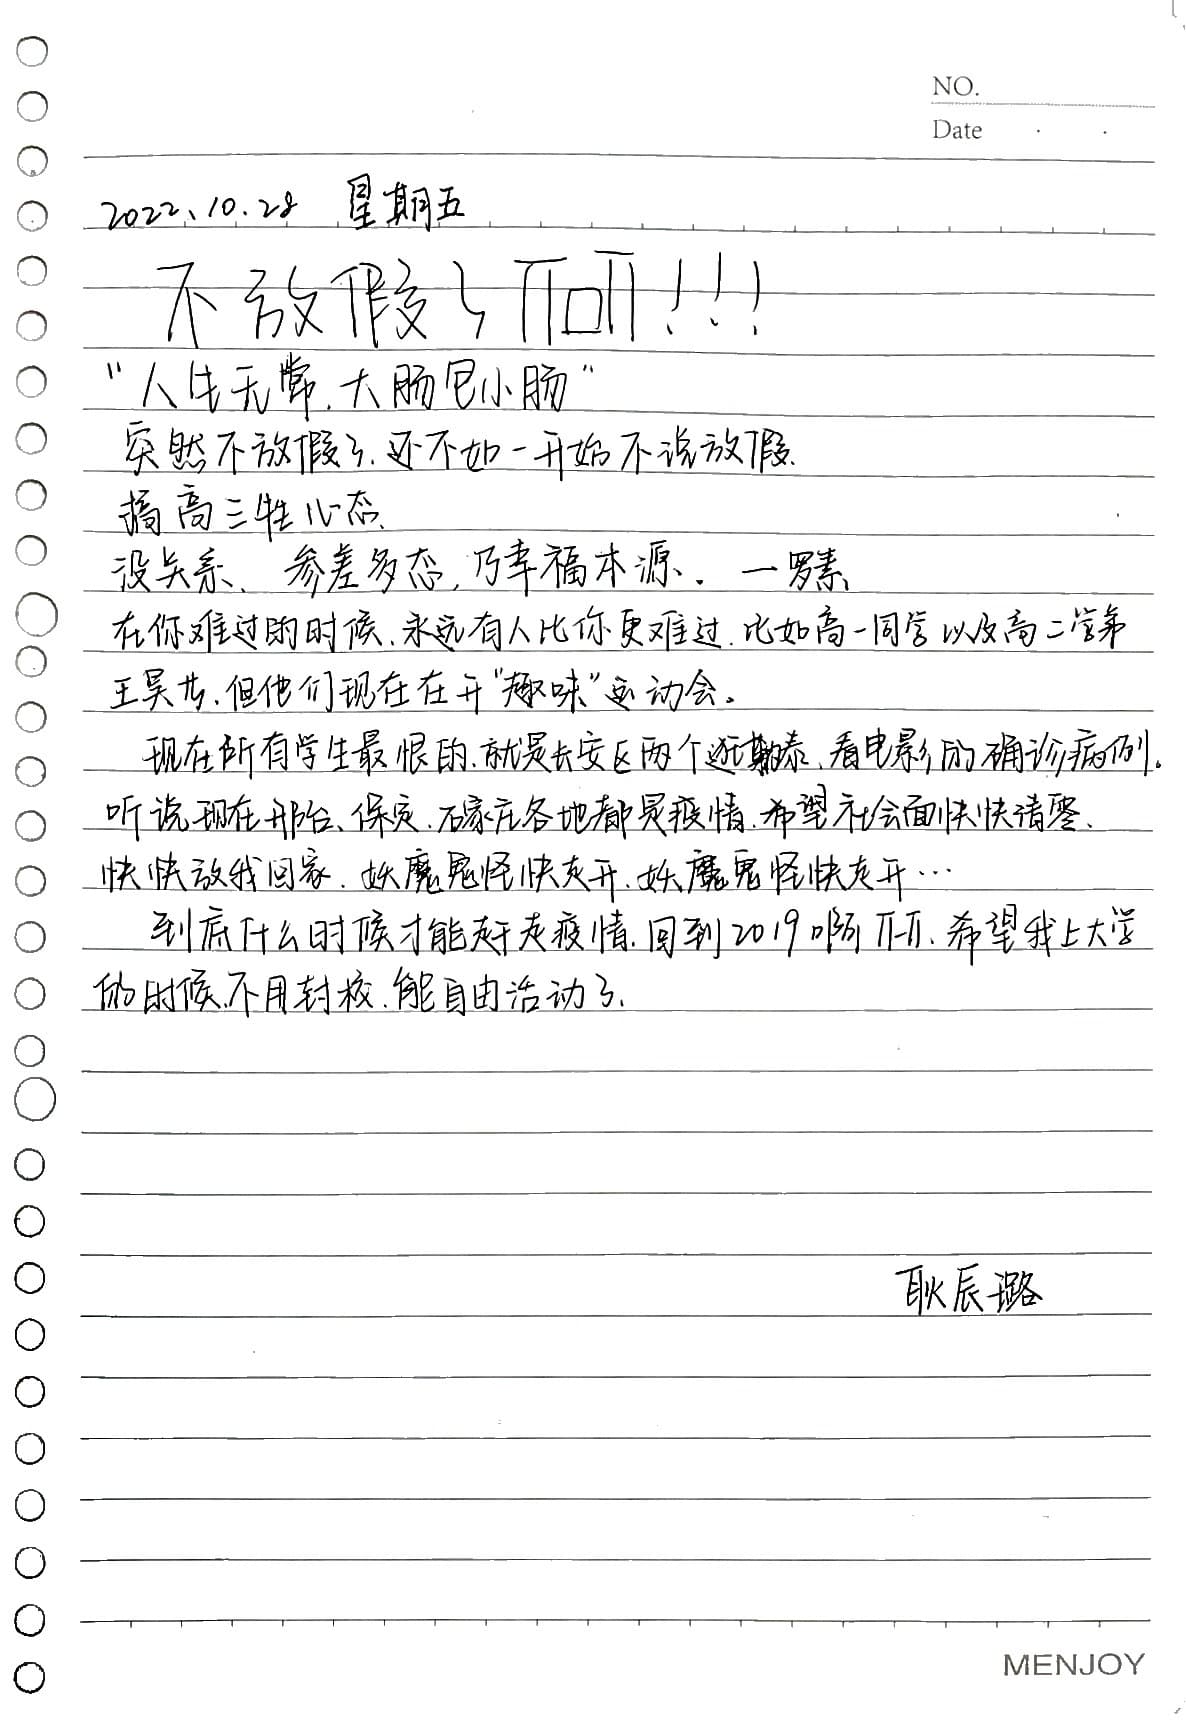 NO.
Date
2022.10.28 星期五
不放假了TT口TT!!!
"人生无常,大肠包小肠"
突然不放假了,还不如一开始不说放假.
搞高三牲心态.
没关系、参差多态,乃幸福本源. —罗素.
在你难过的时候,永远有人比你更难过.比如高一同学以及高二学弟
王昊,但他们现在在开"趣味"运动会。
现在所有学生最恨的,就是长安区两个逛勒泰、看电影的确诊病例。
听说现在邢台、保定、石家庄各地都是疫情.希望社会面快快清零.
快快放我回家.妖魔鬼怪快走开.妖魔鬼怪快走开…
到底什么时候才能赶走疫情,回到2019啊TT-TT.希望我上大学
的时候,不用封校.能自由活动了.
耿辰璐
MENJOY